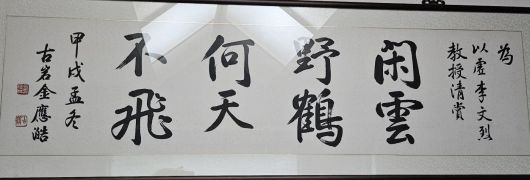 為
以虛李文烈
教授清賞
閑雲
野鶴
何天
不飛
甲戌孟冬
古岩金應浩